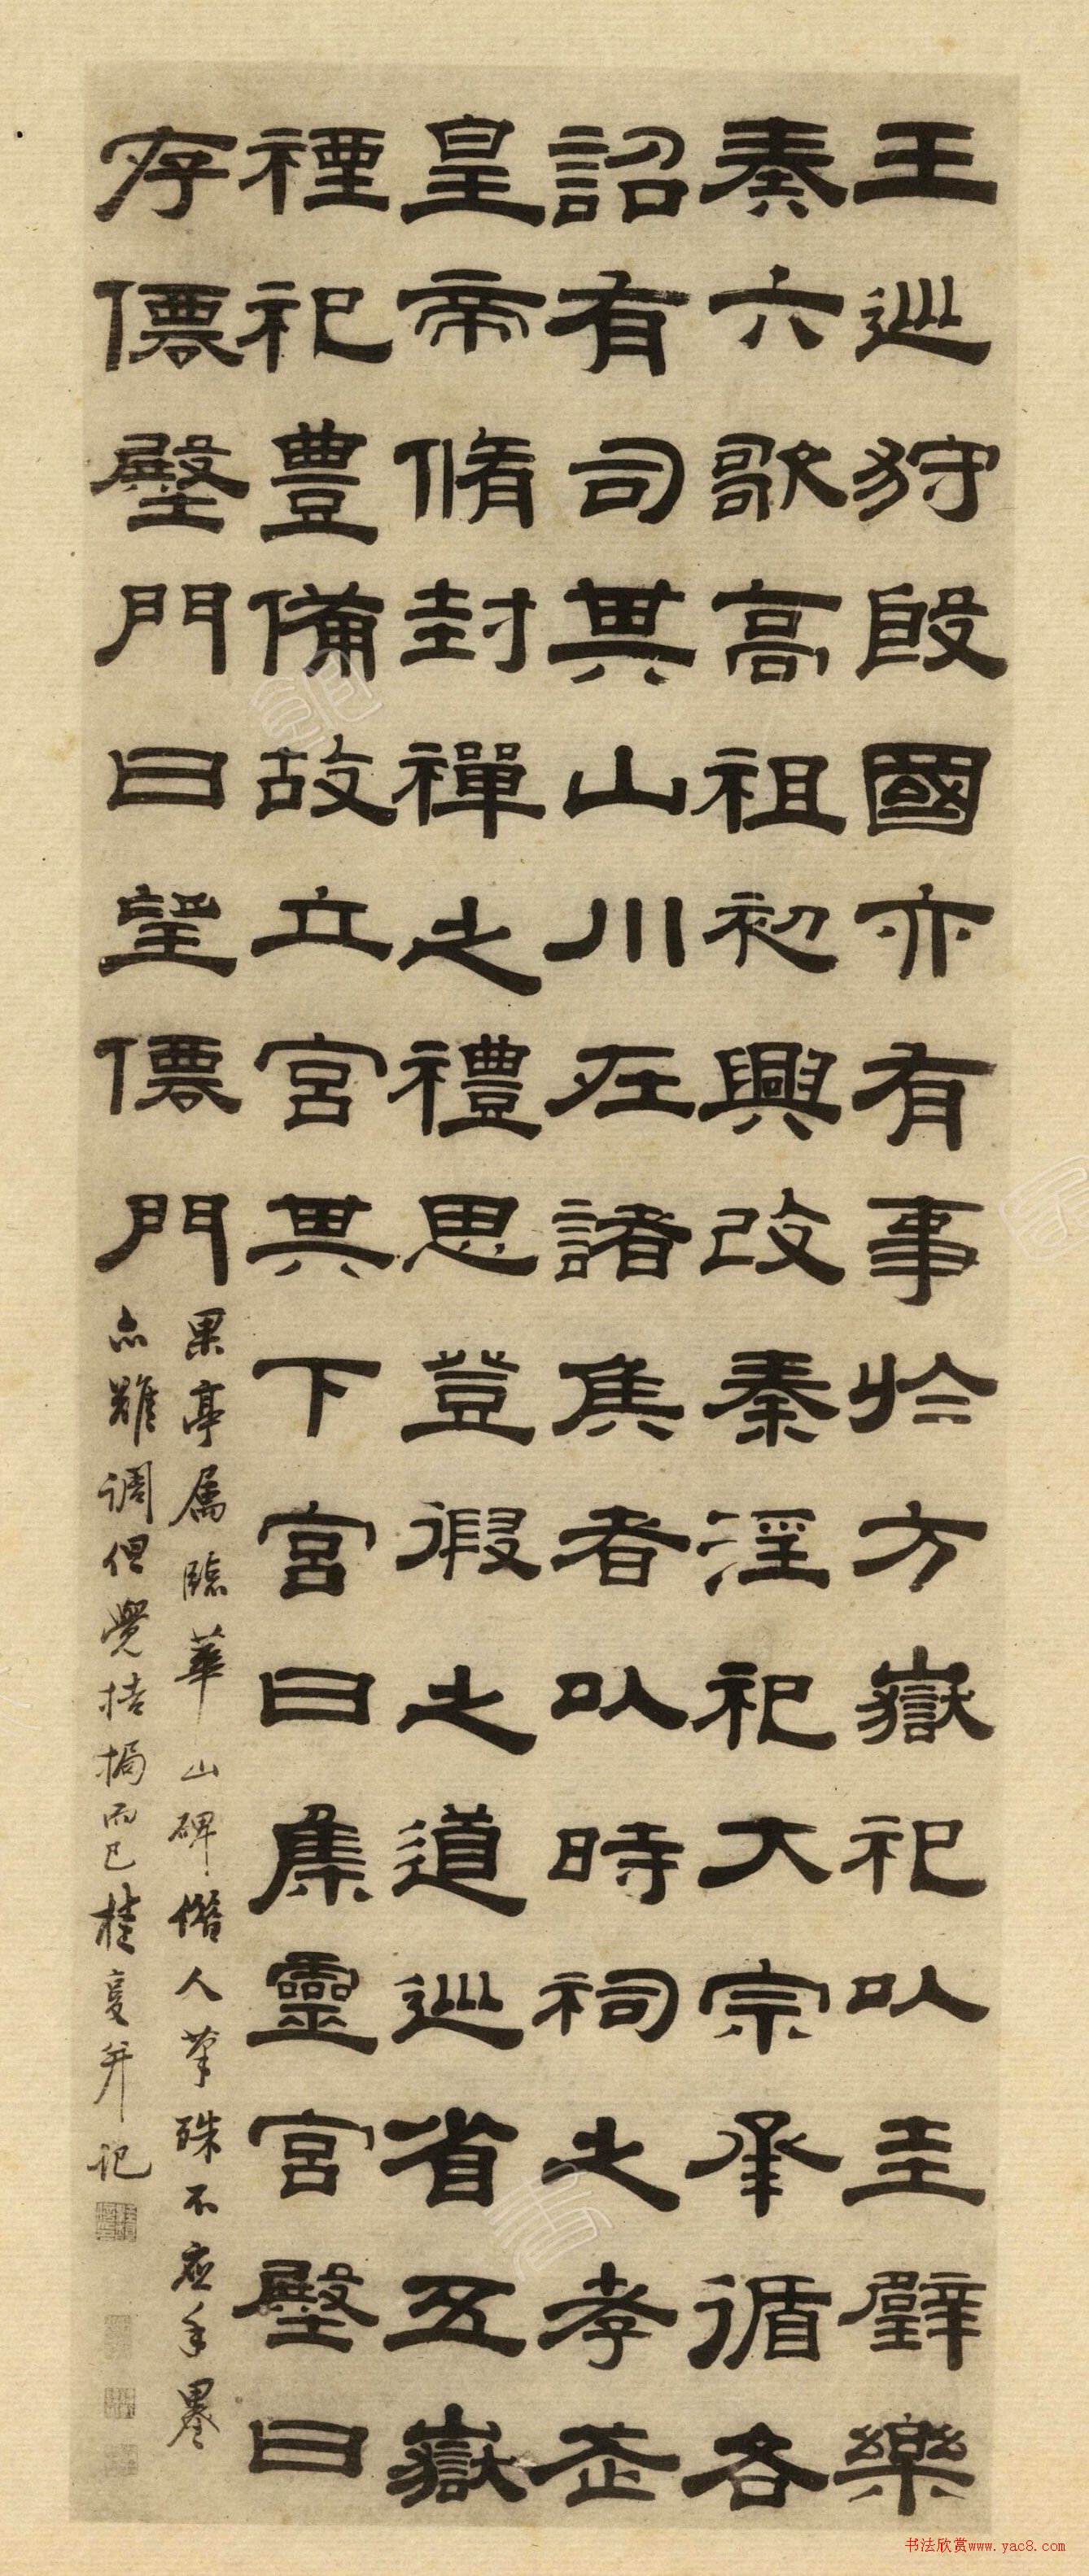 王巡狩殷國亦有事於方嶽祀以圭璧樂
奏六歌高祖初興改秦淫祀大宗承循各
詔有司其山川在諸侯者以時祠之孝武
皇帝脩封禪之禮思登假之道巡省五嶽
禋祀豊備故立宮其下宮曰集靈宮殿曰
存僊殿門曰望僊門
果亭属臨華山碑借人筆殊不應手墨
亦難調但覺拮挶而已桂馥并記
书法欣赏www.yac8.com